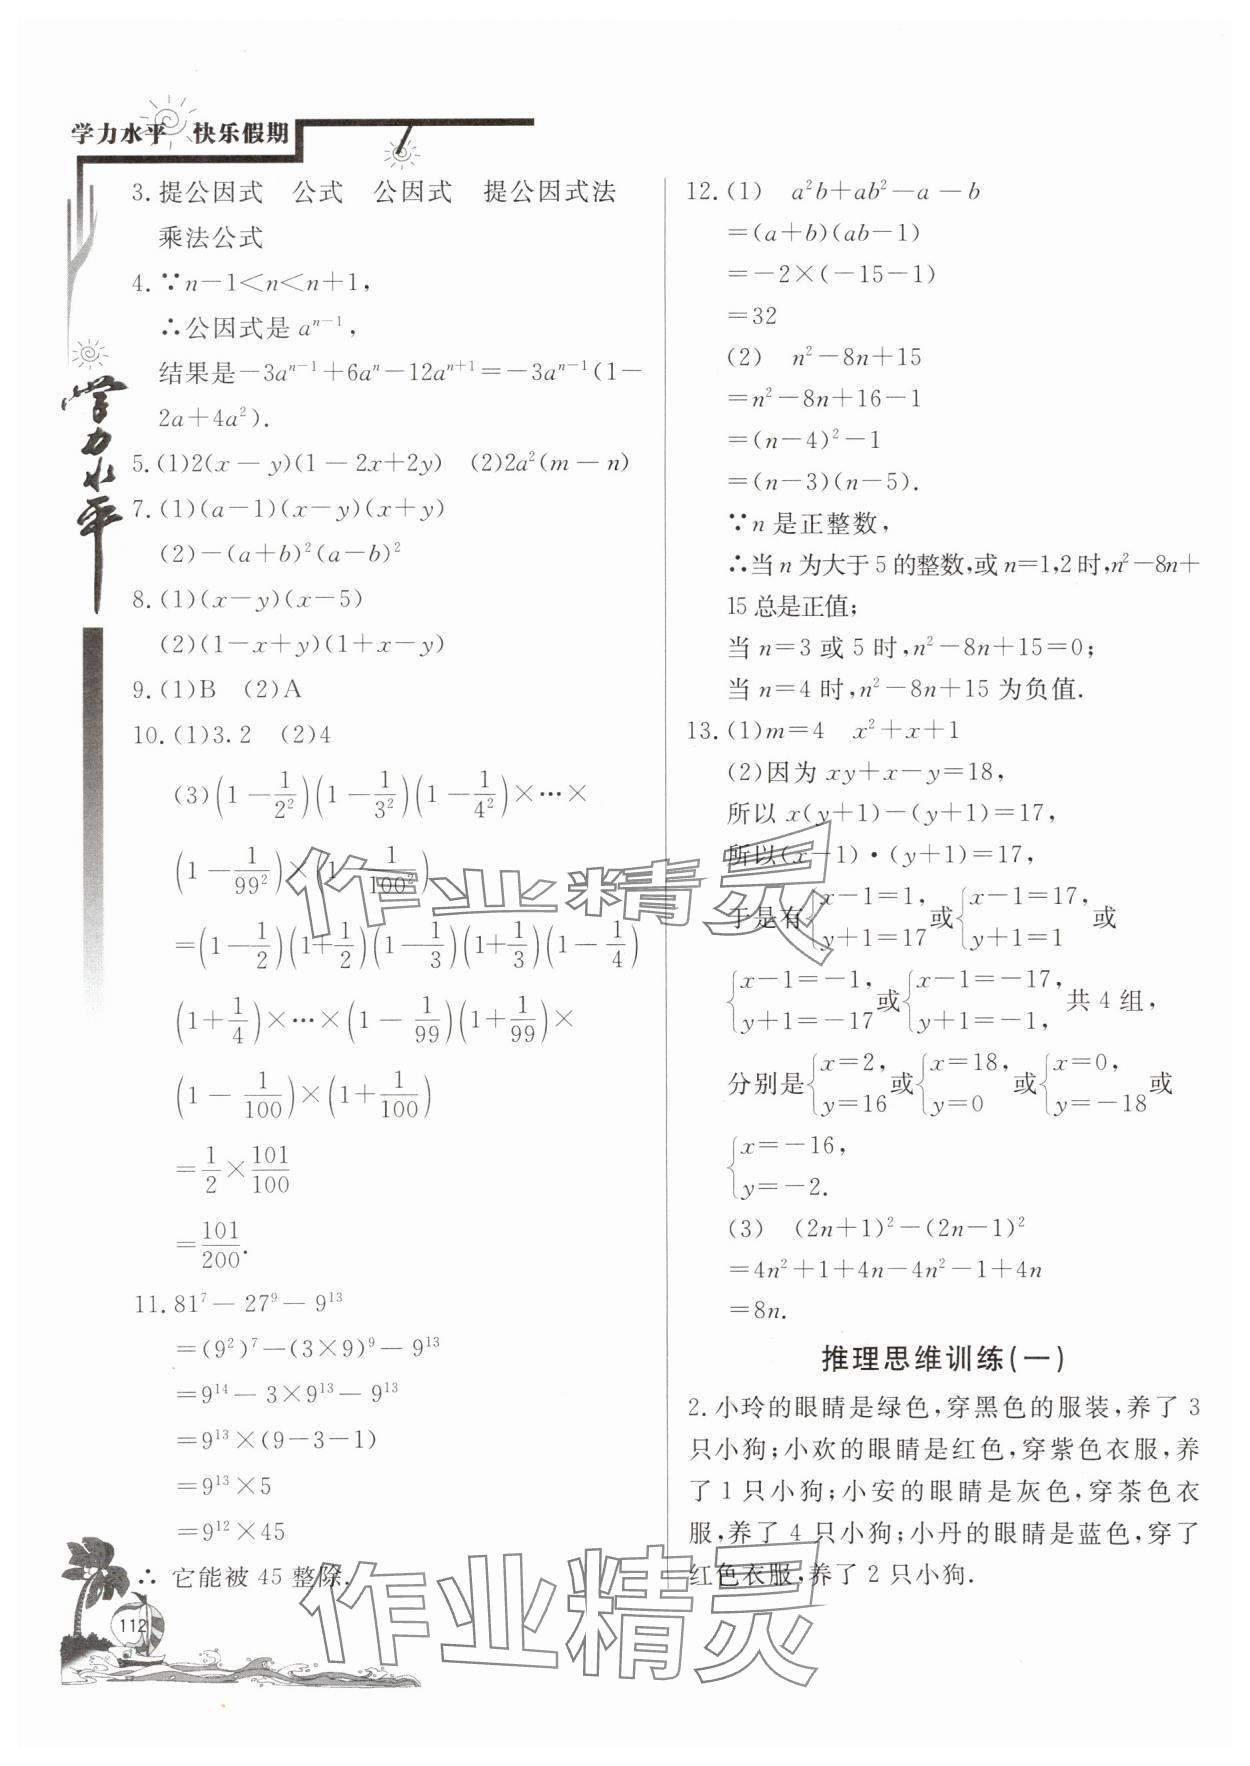 学力水平 快乐假期
学力水平
3.提公因式 公式 公因式 提公因式法
乘法公式
4.∵n−1<n<n+1,
∴公因式是 aⁿ⁻¹,
结果是−3aⁿ⁻¹+6aⁿ−12aⁿ⁺¹=−3aⁿ⁻¹(1−
2a+4a²).
5.(1)2(x−y)(1−2x+2y) (2)2a²(m−n)
7.(1)(a−1)(x−y)(x+y)
(2)−(a+b)²(a−b)²
8.(1)(x−y)(x−5)
(2)(1−x+y)(1+x−y)
9.(1)B (2)A
10.(1)3.2 (2)4
(3)(1−1/2²)(1−1/3²)(1−1/4²)×…×
(1−1/99²)×(1−1/100²)
=(1−1/2)(1+1/2)(1−1/3)(1+1/3)(1−1/4)
(1+1/4)×…×(1−1/99)(1+1/99)×
(1−1/100)×(1+1/100)
=1/2×101/100
=101/200.
11.81⁷−27⁹−9¹³
=(9²)⁷−(3×9)⁹−9¹³
=9¹⁴−3×9¹³−9¹³
=9¹³×(9−3−1)
=9¹³×5
=9¹²×45
∴ 它能被 45 整除.
112
12.(1) a²b+ab²−a−b
=(a+b)(ab−1)
=−2×(−15−1)
=32
(2) n²−8n+15
=n²−8n+16−1
=(n−4)²−1
=(n−3)(n−5).
∵n 是正整数,
∴当 n 为大于 5 的整数,或 n=1,2 时,n²−8n+
15 总是正值;
当 n=3 或 5 时,n²−8n+15=0;
当 n=4 时,n²−8n+15 为负值.
13.(1)m=4 x²+x+1
(2)因为 xy+x−y=18,
所以 x(y+1)−(y+1)=17,
所以(x−1)·(y+1)=17,
于是有{x−1=1, y+1=17或{x−1=17, y+1=1或
{x−1=−1, y+1=−17或{x−1=−17, y+1=−1,共 4 组,
分别是{x=2, y=16或{x=18, y=0或{x=0, y=−18或
{x=−16, y=−2.
(3) (2n+1)²−(2n−1)²
=4n²+1+4n−4n²−1+4n
=8n.
推理思维训练(一)
2.小玲的眼睛是绿色,穿黑色的服装,养了 3
只小狗;小欢的眼睛是红色,穿紫色衣服,养
了 1 只小狗;小安的眼睛是灰色,穿茶色衣
服,养了 4 只小狗;小丹的眼睛是蓝色,穿了
红色衣服,养了 2 只小狗.
作业精灵
作业精灵